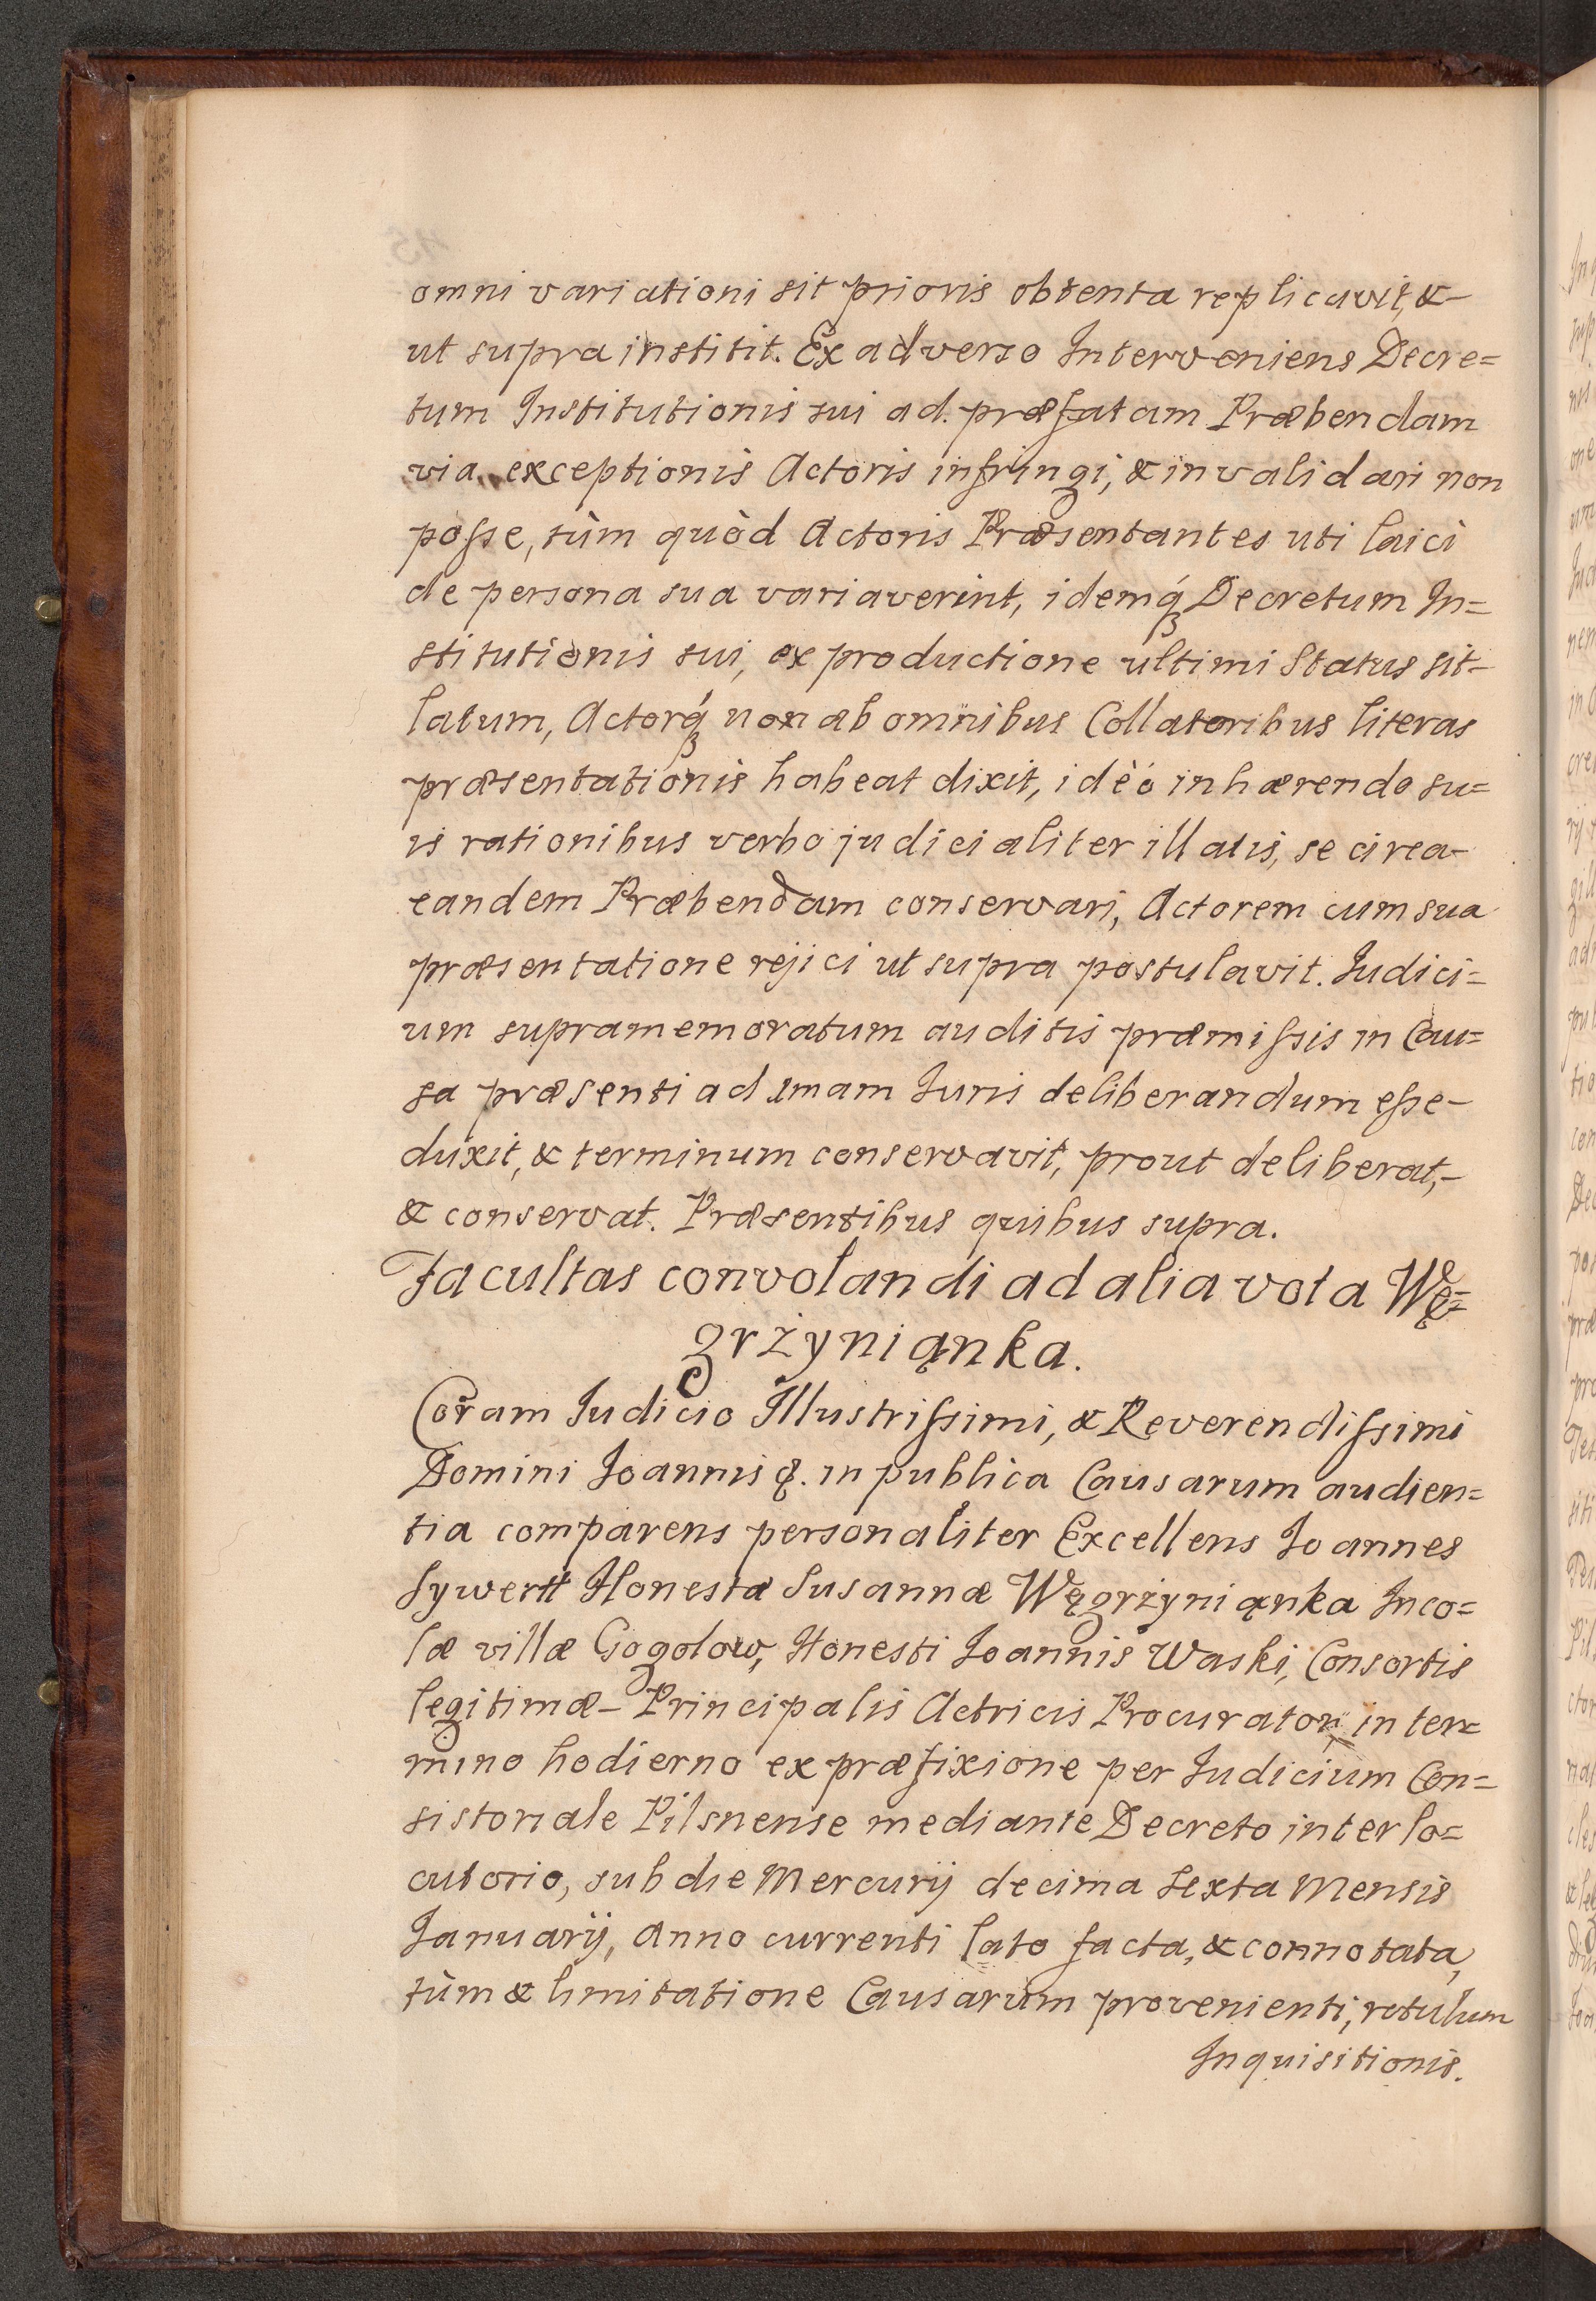 omni variationi sit prioris obtenta replicavit, &-
ut supra institit. Ex adverso Interveniens Decre=
tum Institutionis sui ad præfatam Præbendam
via exceptionis Actoris infringi, & invalidari non
poſse, tùm quòd Actoris Præsentantes uti laici
de persona sua variaverint, idemq́ꝫ Decretum In=
stitutionis sui, ex productione ultimi Status sit-
latum, Actorq́ꝫ non ab omnibus Collatoribus literas
præsentationis habeat dixit, idèò inhærendo su=
is rationibus verbo judicialiter illatis, se circa-
eandem Præbendam conservari, Actorem cum sua
præsentatione rejici ut supra postulavit. Iudici=
um supramemoratum auditis præmiſsis in Cau=
sa præsenti ad 1mam Iuris deliberandum eſse-
duxit, & terminum conservavit, prout deliberat,-
& conservat. Præsentibus quibus supra.
Facultas convolandi ad alia vota Wę=
grżyniąnka.
Coram Iudicio Illustriſsimi, & Reverendiſsimi
Domini Ioannis &. in publica Causarum audien=
tia comparens personaliter Excellens Ioannes
Sywertt Honestæ Susannæ Węgrżyniąnka Inco=
læ villæ Gogolow, Honesti Ioannis Waski, Consortis
legitimæ- Principalis Actricis Procurator, in ter=
mino hodierno ex præfixione per Iudicium Con=
sistoriale Pilsnense mediante Decreto interlo=
cutorio, sub die Mercurij decima sexta Mensis
Ianuarij, Anno currenti lato facta, & connotata,
tùm & limitatione Causarum provenienti, rotulum
Inquisitionis.